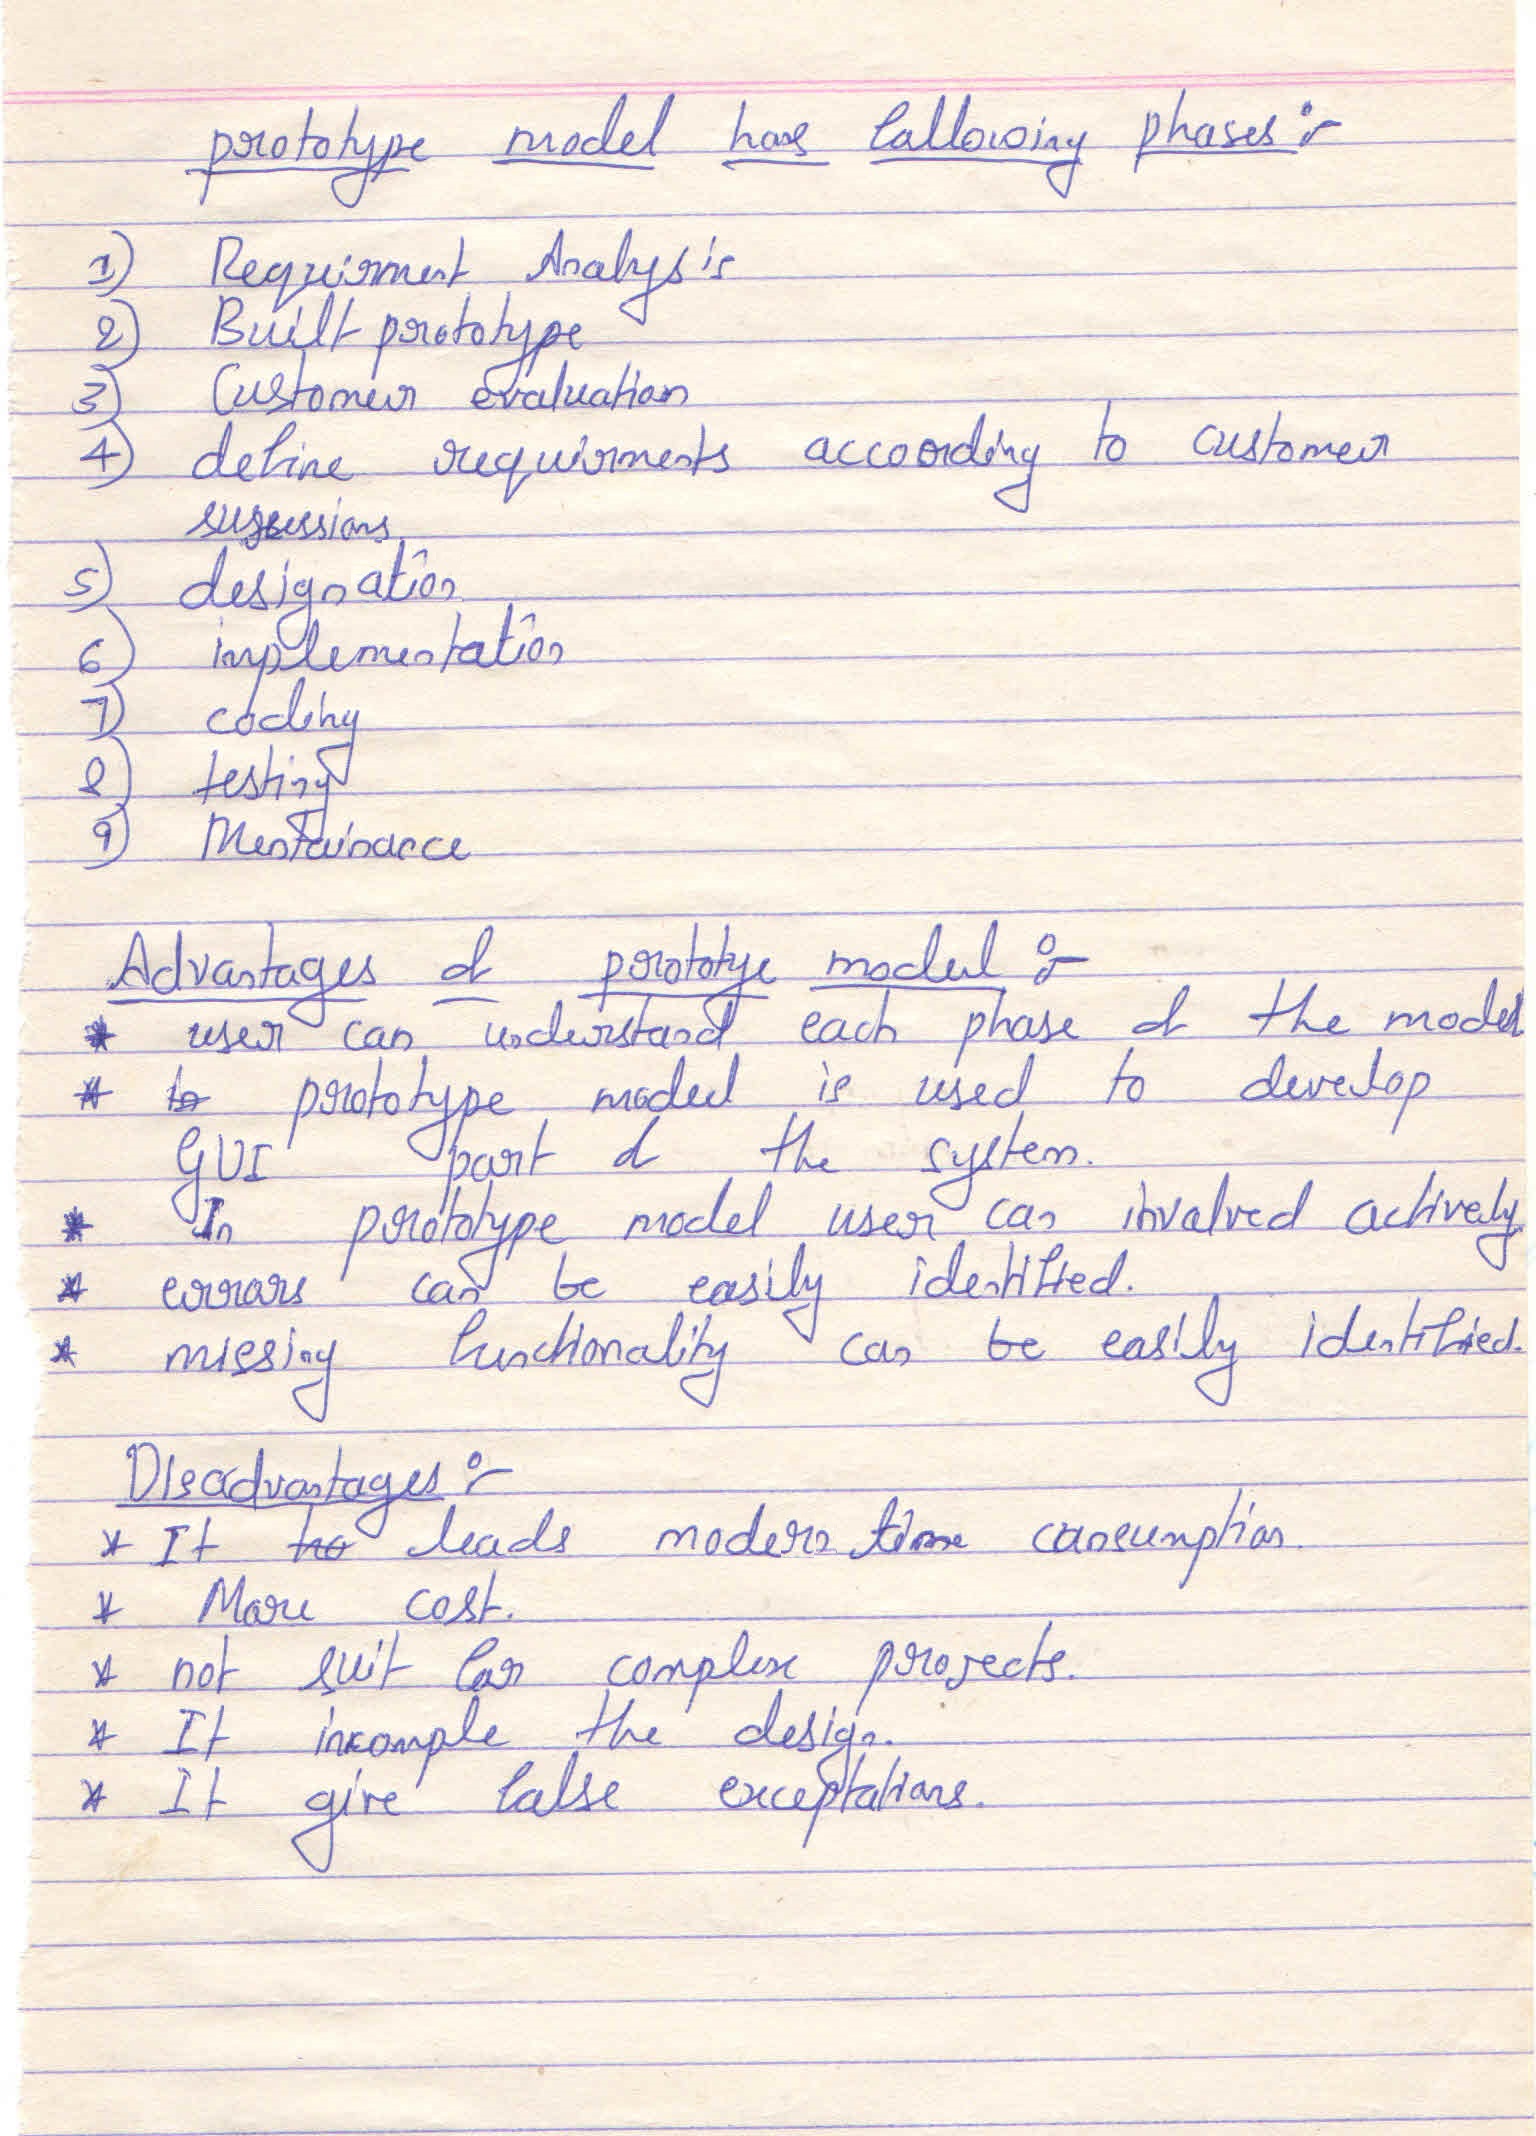 prototype model has following phases :-
1) Requirment Analysis
2) Built prototype
3) Customer evaluation
4) define requirments according to customer
5) designation
6) implementation
7) coding
8) testing
9) Mentainance
Advantages of prototye model :-
* user can understand each phase of the model
* to prototype model is used to develop
GUI part of the system.
* In prototype model user can involved actively
* errors can be easily identified.
* missing functionality can be easily identified.
Disadvantages :-
* It leads modern time consumption.
* More cost.
* not suit for complex projects.
* It incomple the design.
* It give false exceptations.